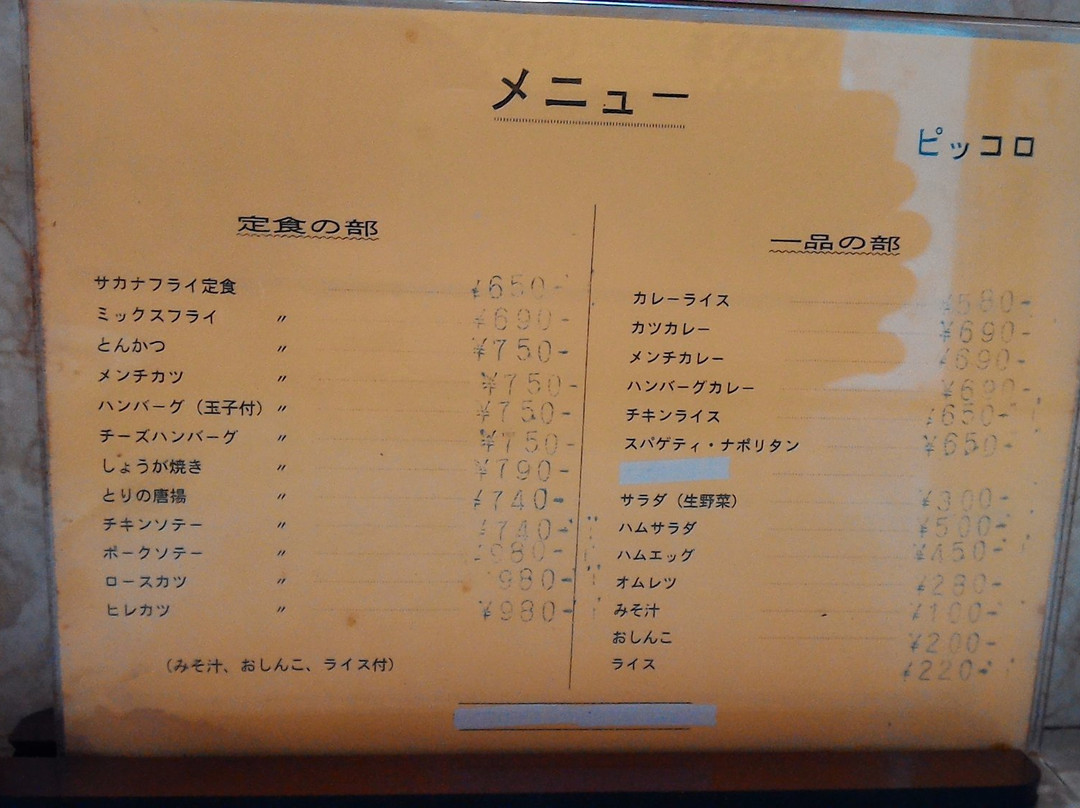 メニュー
ピッコロ
定食の部
サカナフライ定食 ¥650-
ミックスフライ 〃 ¥690-
とんかつ 〃 ¥750-
メンチカツ 〃 ¥750-
ハンバーグ（玉子付）〃 ¥750-
チーズハンバーグ 〃 ¥750-
しょうが焼き 〃 ¥790-
とりの唐揚 〃 ¥740-
チキンソテー 〃 ¥740-
ポークソテー 〃 ¥980-
ロースカツ 〃 980-
ヒレカツ 〃 ¥980-
（みそ汁、おしんこ、ライス付）
一品の部
カレーライス ¥580-
カツカレー ¥690-
メンチカレー ¥690-
ハンバーグカレー ¥690-
チキンライス ¥650-
スパゲティ・ナポリタン ¥650-
サラダ（生野菜） ¥300-
ハムサラダ ¥500-
ハムエッグ ¥450-
オムレツ ¥280-
みそ汁 ¥100-
おしんこ ¥200-
ライス ¥220-